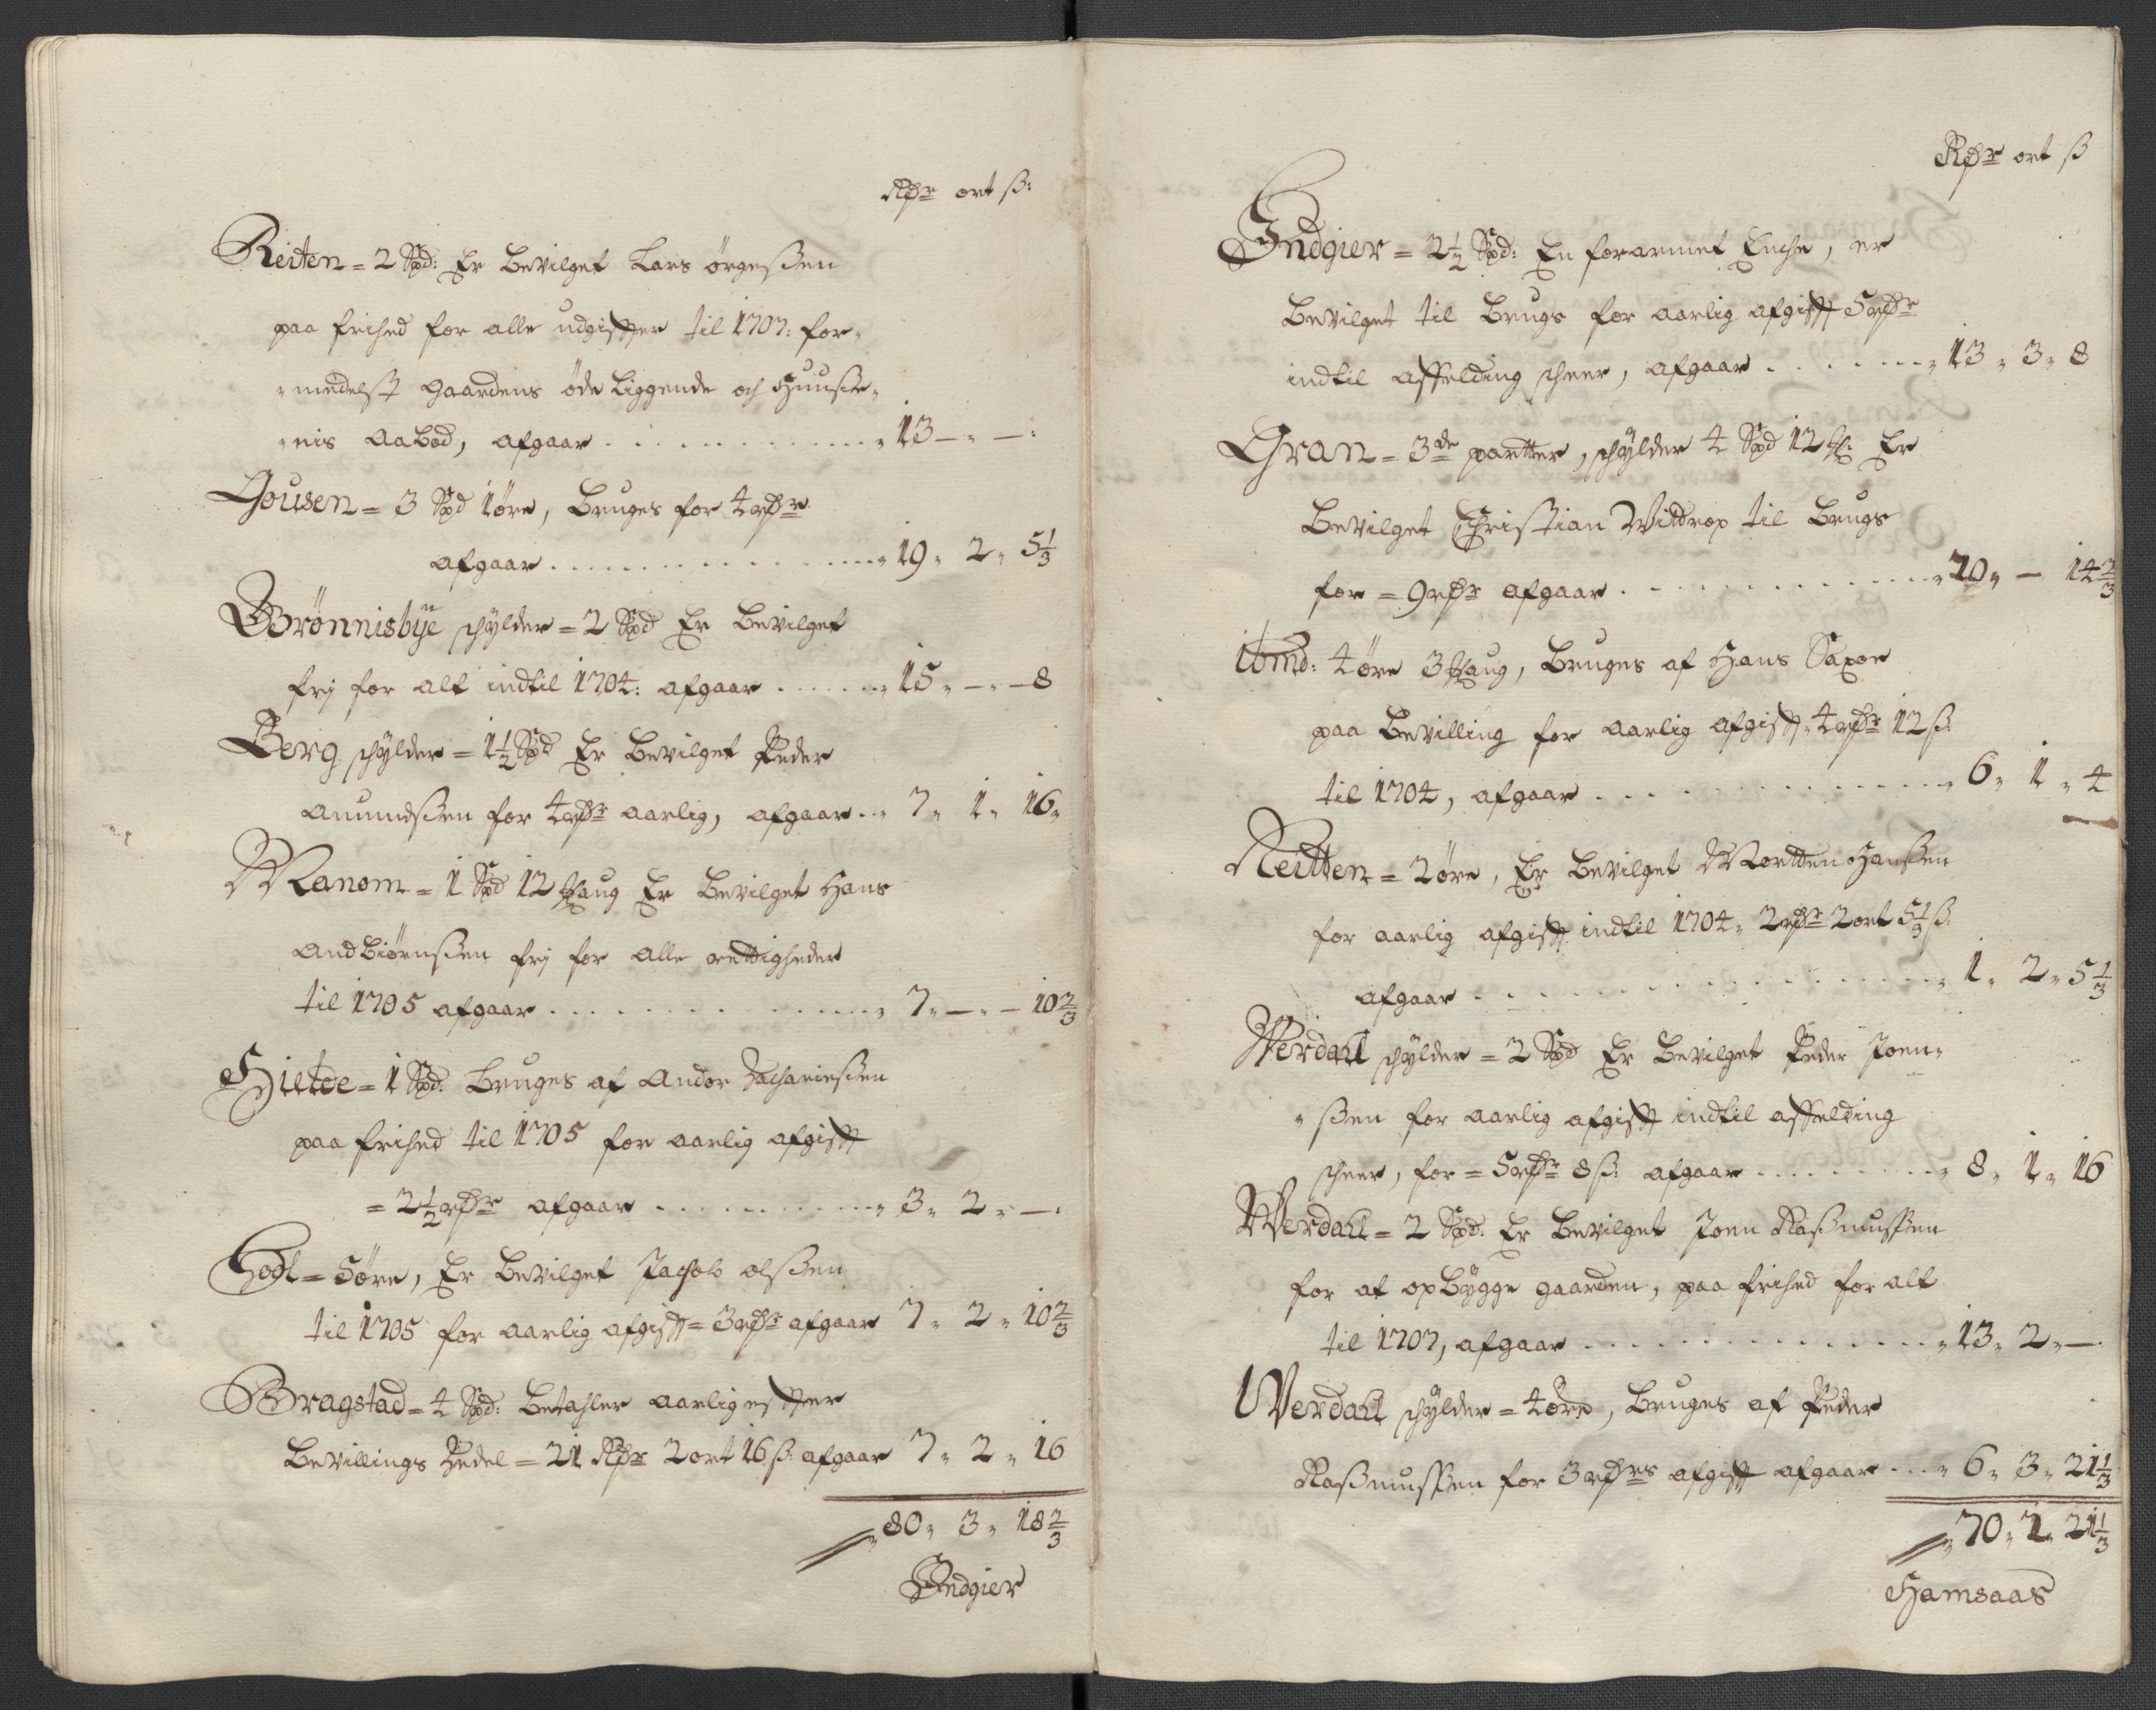 Rdr ort ß:
Reiten = 2 Spd: Er bevilget Lars örgeßen
paa frihed for alle udgiffter til 1707: for-
-medelst gaardens öde liggende og Huuße-
-nis aabod, afgaar . . . . . . . . . . . 13 - - -:
Housen = 3 Spd 1 öre, bruges for 4 rdr
afgaar . . . . . . . . . . . . . . . 19 - 2 - 5 1/3
Brönnisbye schylder = 2 Spd Er bevilget
frj for alt indtil 1704: afgaar . . . . . . 15 - - - 8
Berg schylder = 1 1/2 Spd Er bevilget Peder
Amundßen for 4 rdr aarlig, afgaar . . 7 - 1 - 16 -
Manom = 1 Spd 12 Maug Er bevilget Hans
Andbiörnßen frj for alle rettigheder
til 1705 afgaar . . . . . . . . . . . . . 7 - - - 10 2/3
Hielde = 1 Spd: bruges af Andor Zacharießen
paa frihed til 1705 for aarlig afgifft
= 2 1/2 rdr afgaar . . . . . . . . . . 3 - 2 - -:
= 5 öre, Er bevilget Jachob olßen
til 1705 for aarlig afgifft = 3 rdr afgaar 7 - 2 - 10 2/3
Bragstad = 4 Spd: betahler aarlig effter
bevillings Zedel = 21 Rdr 2 ort 16 ß: afgaar 7 - 2 - 16
80 - 3 - 18 2/3
Indgier
Rdr ort ß
Indgier = 2 1/2 Spd: En forarmet Enche, er
bevilget til brugs for aarlig afgifft 5 rdr
indtil affelding scheer, afgaar . . . . . . 13 - 3 - 8
Gran = 3de partter, schylder 4 Spd 12 M: Er
bevilget Christian Wildrop til brugs
for = 9 rdr afgaar . . . . . . . . . . . . 20 - - 14 2/3
ibmd: 4 öre 3 Maug, bruges af Hans Saxor
paa bevilling for aarlig afgifft - 4 rdr 12 ß
til 1704, afgaar . . . . . . . . . . . . . . 6 - 1 - 4
Reitten = 2 öre, Er bevilget Mortten Hanßen
for aarlig afgifft indtil 1704 - 2 rdr 2 ort 5 1/3 ß
afgaar . . . . . . . . . . . . . . . . . 1 - 2 - 5 1/3
Werdall schylder = 2 Spd Er bevilget Peder Joen-
-ßen for aarlig afgifft indtil affelding
scheer, for = 5 rdr 8 ß: afgaar . . . . . . . . . 8 - 1 - 16
Werdall = 2 Spd: Er bevilget Joen Raßmussen
for at opbygge gaarden, paa frihed for alt
til 1707, afgaar . . . . . . . . . . . . . . 13 - 2 - -
Werdall schylder = 4 öre, bruges af Peder
Raßmussen for 3 rdrs afgifft afgaar . . . 6 - 3 - 21 1/3
70 - 2 - 21 1/3
Hamsaas